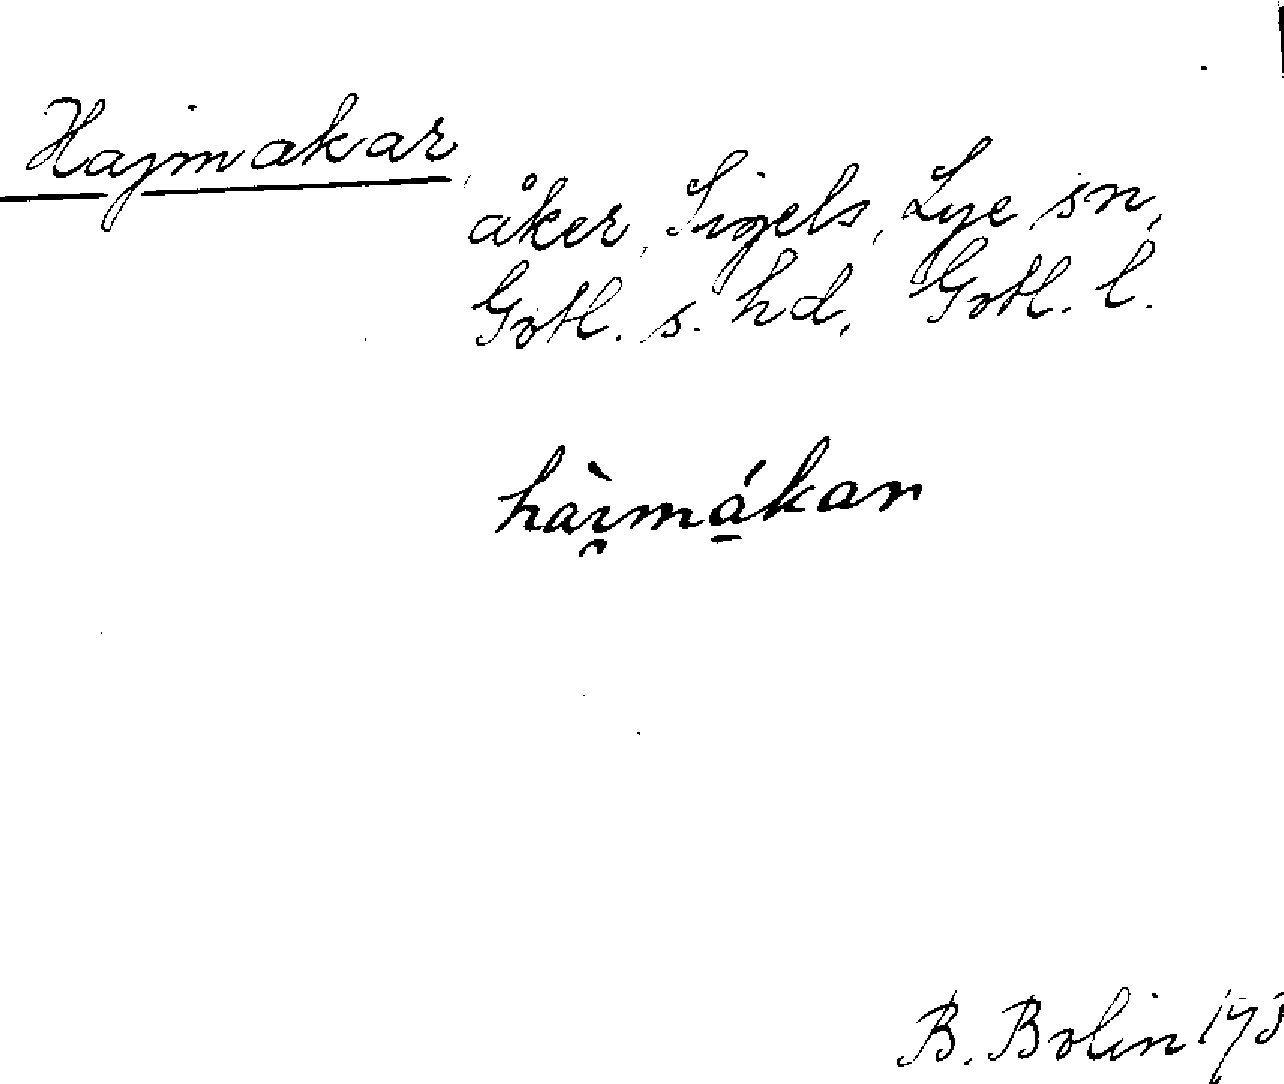 Hajmakar,
åker, Sigels, Lye sn,
Gotl. s. hd, Gotl. l.
hàı̯má̲kar
B. Bolin